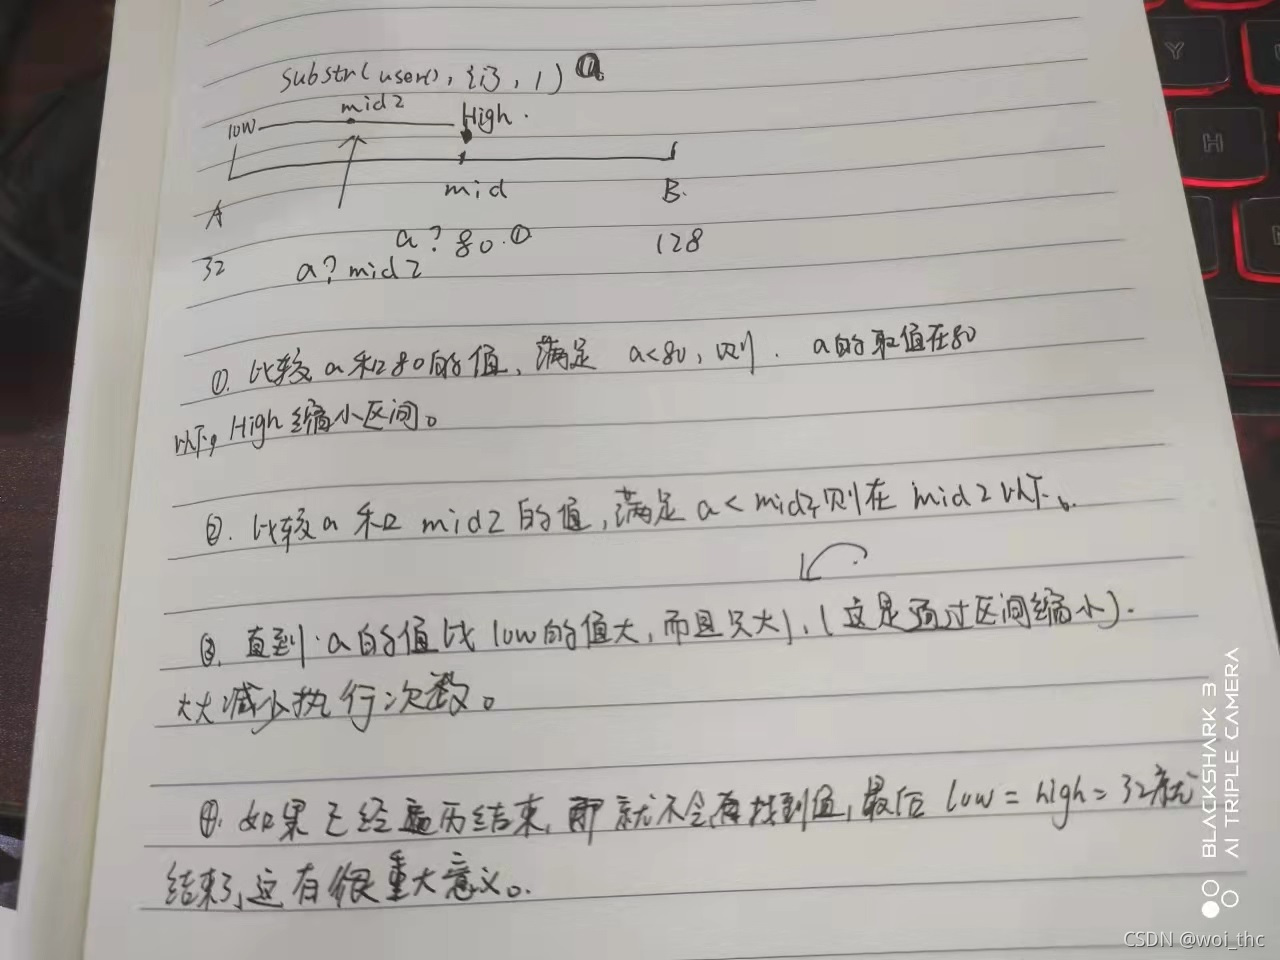 substr(user(), {i}, 1) a
mid2
low High.
mid B.
A
a? 80. ① 128
32 a? mid2
①. 比较a和80的值, 满足 a<80, 则. a的取值在80
以下, High缩小区间。
②. 比较a和 mid2 的值, 满足 a < mid2, 则在 mid2 以下。
③. 直到 a的值比 low的值大, 而且只大1, (这是通过区间缩小).
大大减少执行次数。
④. 如果已经遍历结束, 那就不会再找到值, 最后 low = high = 32就
结束了, 这有很重大意义。
Y
H
BLACKSHARK 3
AI TRIPLE CAMERA
CSDN @woi_thc